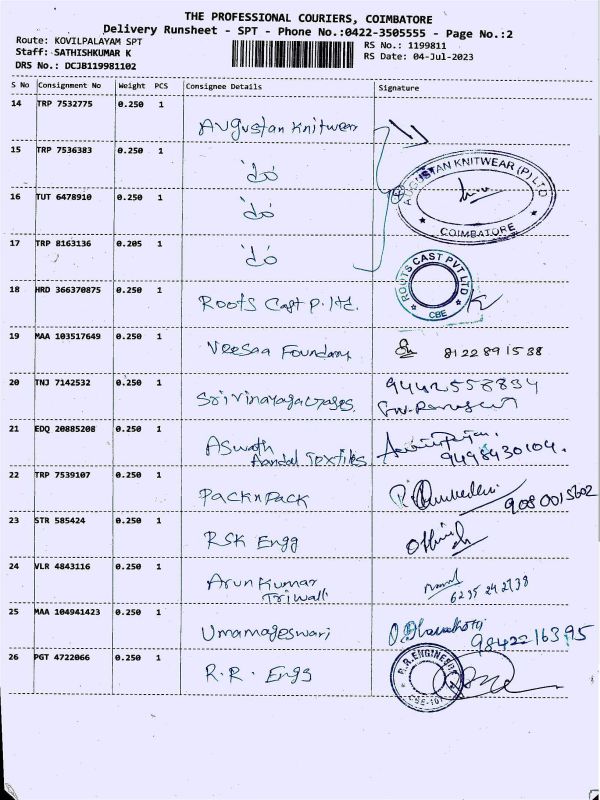 THE PROFESSIONAL COURIERS, COIMBATORE
Delivery Runsheet - SPT - Phone No.:0422-3505555 - Page No.:2
Route: KOVILPALAYAM SPT
RS No.: 1199811
Staff: SATHISHKUMAR K
RS Date: 04-Jul-2023
DRS No.: DCJB119981102
S No Consignment No Weight PCS Consignee Details Signature
14 TRP 7532775 0.250 1
Augustan Knitwear
15 TRP 7536383 0.250 1
do
AUGUSTAN KNITWEAR (P) LTD
COIMBATORE
16 TUT 6478910 0.250 1
do
17 TRP 8163136 0.205 1
do
ROOTS CAST PVT LTD
CBE
18 HRD 366370875 0.250 1
Roots Cast P. ltd.
19 MAA 103517649 0.250 1
Veesaa Foundary 8122891538
20 TNJ 7142532 0.250 1
Sri Vinayaga
21 EDQ 20885208 0.250 1
Aswath
Aandal Textiles 9498430104.
22 TRP 7539107 0.250 1
Pack n Pack
23 STR 585424 0.250 1
RSK Engg
24 VLR 4843116 0.250 1
Arun Kumar
Triwall
25 MAA 104941423 0.250 1
Umamageswari 9842216395
26 PGT 4722066 0.250 1
R.R. Engg
R.R.ENGINEERS